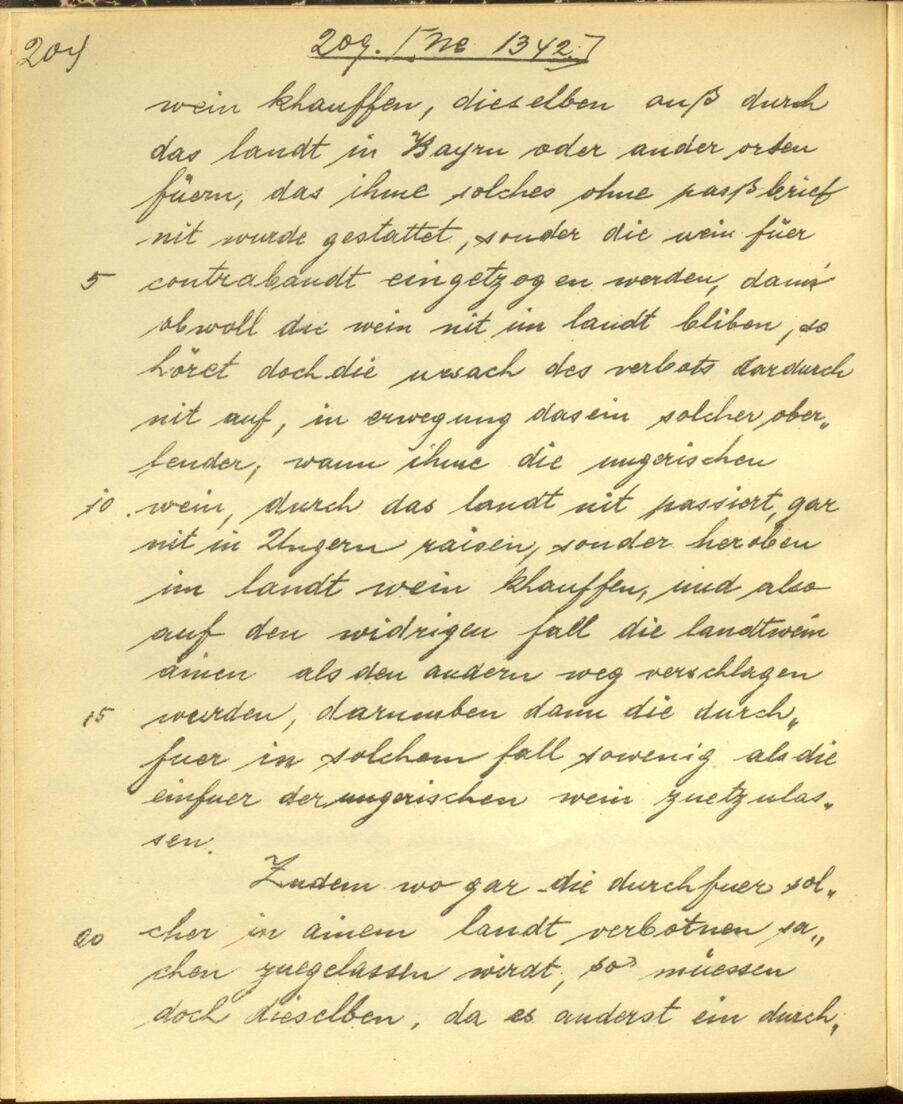 209
209. [Ne 1342.]
wein khauffen, dieselben auß durch
das landt in Bayrn oder ander orten
füern, das ihme solches ohne paßbrief
nit wurde gestattet, sonder die wein füer
5 contrabandt eingetzogen werden, dann
obwoll die wein nit im landt bliben, so
höret doch die ursach des verbots dardurch
nit auf, in erwegung das ein solcher ober„
lender, wann ihme die ungerischen
10. wein, durch das landt nit passiert, gar
nit in Ungern raisen, sonder heroben
im landt wein khauffen, und also
auf den widrigen fall die landtwein
ainen als den andern weg verschlagen
15 wurden, darumben dann die durch„
fuer in solchem fall sowenig als die
einfuer der ungerischen wein zuetzulas„
sen.
Zudem wo gar die durchfuer sol„
20 cher in ainem landt verbotnen sa„
chen zuegelassen wirdt, so müessen
doch dieselben, da es anderst ein durch„